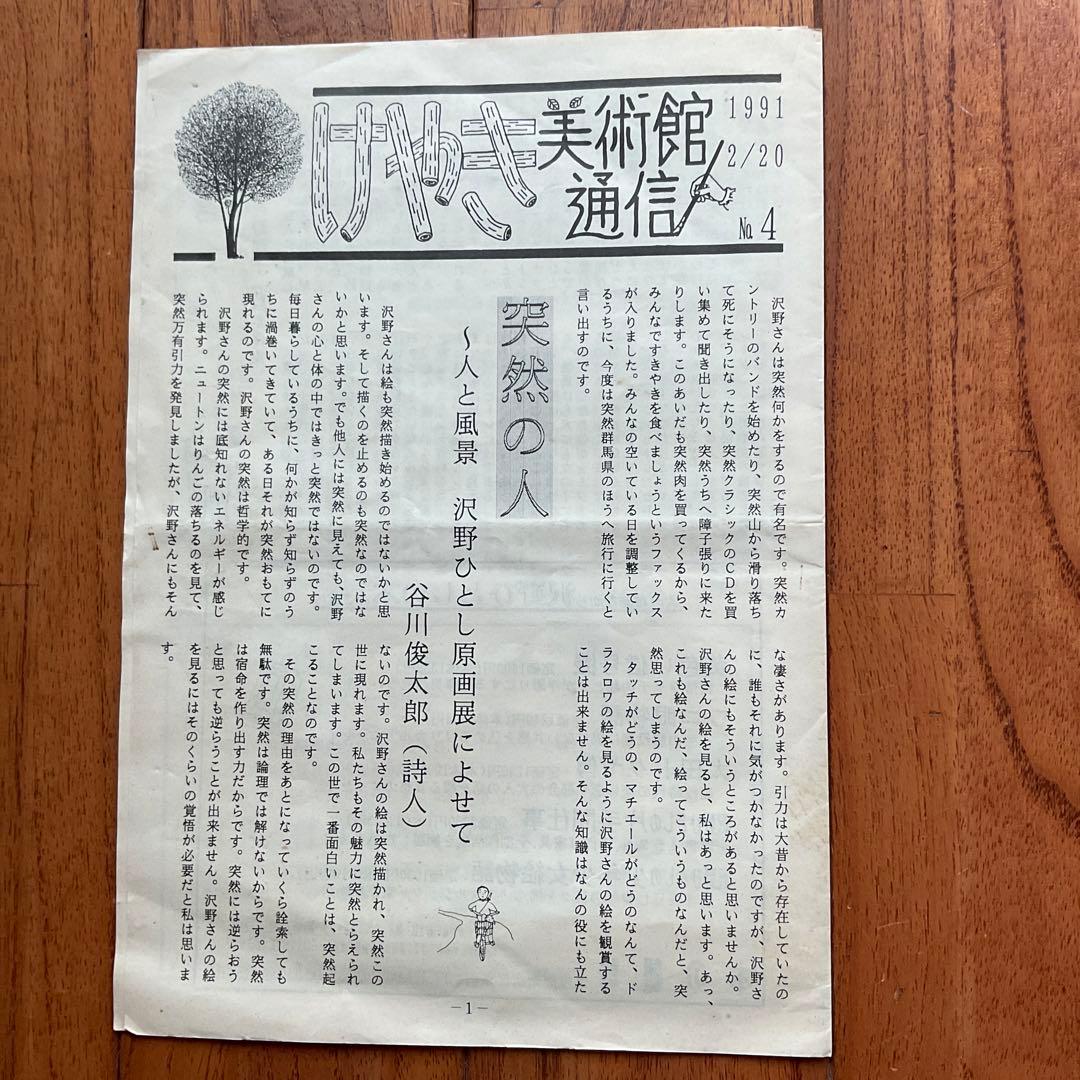 けやき美術館
通信
1991
2/20
No.4
突然の人
～人と風景　沢野ひとし原画展によせて
谷川俊太郎（詩人）
沢野さんは突然何かをするので有名です。突然カ
ントリーのバンドを始めたり、突然山から滑り落ち
て死にそうになったり、突然クラシックのCDを買
い集めて聞き出したり、突然うちへ障子張りに来た
りします。このあいだも突然肉を買ってくるから、
みんなですきやきを食べましょうというファックス
が入りました。みんなの空いている日を調整してい
るうちに、今度は突然群馬県のほうへ旅行に行くと
言い出すのです。
沢野さんは絵も突然描き始めるのではないかと思
います。そして描くのを止めるのも突然なのではな
いかと思います。でも他人には突然に見えても、沢野
さんの心と体の中ではきっと突然ではないのです。
毎日暮らしているうちに、何かが知らず知らずのう
ちに渦巻いてきていて、ある日それが突然おもてに
現れるのです。沢野さんの突然は哲学的です。
沢野さんの突然には底知れないエネルギーが感じ
られます。ニュートンはりんごの落ちるのを見て、
突然万有引力を発見しましたが、沢野さんにもそん
な凄さがあります。引力は大昔から存在していたの
に、誰もそれに気がつかなかったのですが、沢野さ
んの絵にもそういうところがあると思いませんか。
沢野さんの絵を見ると、私はあっと思います。あっ、
これも絵なんだ、絵ってこういうものなんだと、突
然思ってしまうのです。
タッチがどうの、マチエールがどうのなんて、ド
ラクロワの絵を見るように沢野さんの絵を観賞する
ことは出来ません。そんな知識はなんの役にも立た
ないのです。沢野さんの絵は突然描かれ、突然この
世に現れます。私たちもその魅力に突然とらえられ
てしまいます。この世で一番面白いことは、突然起
こることなのです。
その突然の理由をあとになっていくら詮索しても
無駄です。突然は論理では解けないからです。突然
は宿命を作り出す力だからです。突然には逆らおう
と思っても逆らうことが出来ません。沢野さんの絵
を見るにはそのくらいの覚悟が必要だと私は思いま
す。
―1―